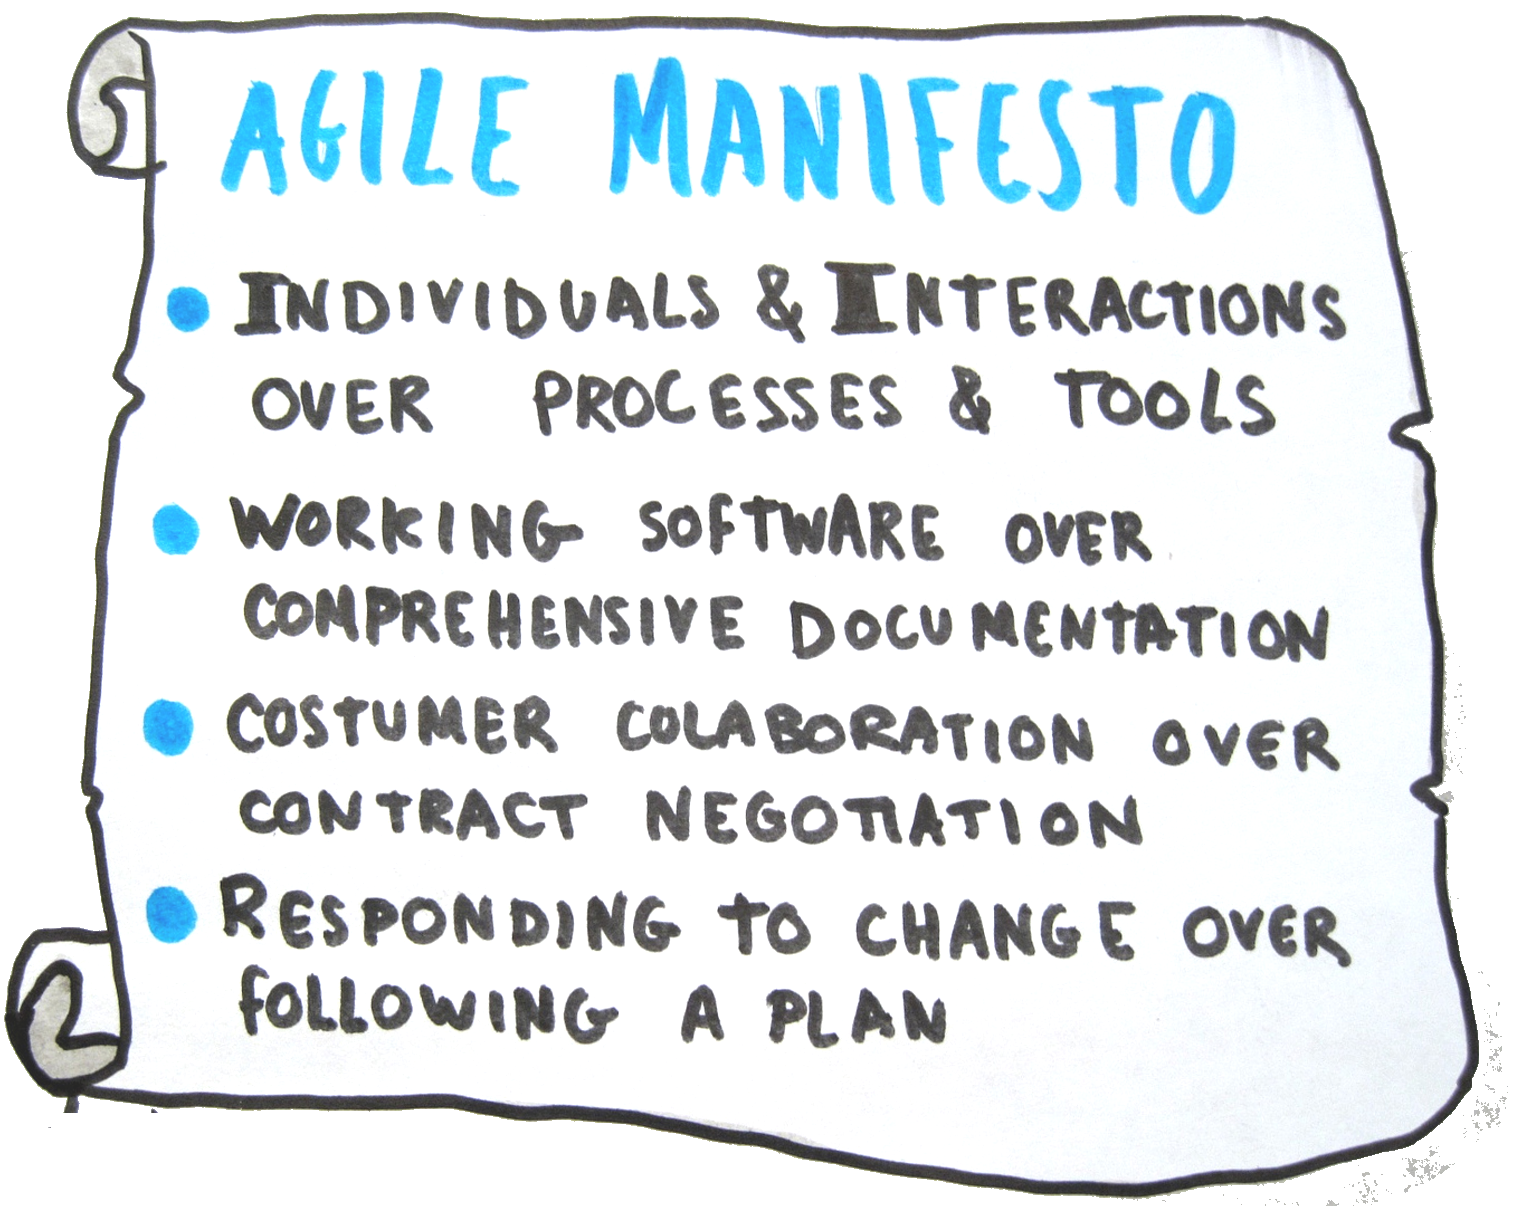 AGILE MANIFESTO
INDIVIDUALS & INTERACTIONS
OVER PROCESSES & TOOLS
WORKING SOFTWARE OVER
COMPREHENSIVE DOCUMENTATION
COSTUMER COLABORATION OVER
CONTRACT NEGOTIATION
RESPONDING TO CHANGE OVER
FOLLOWING A PLAN